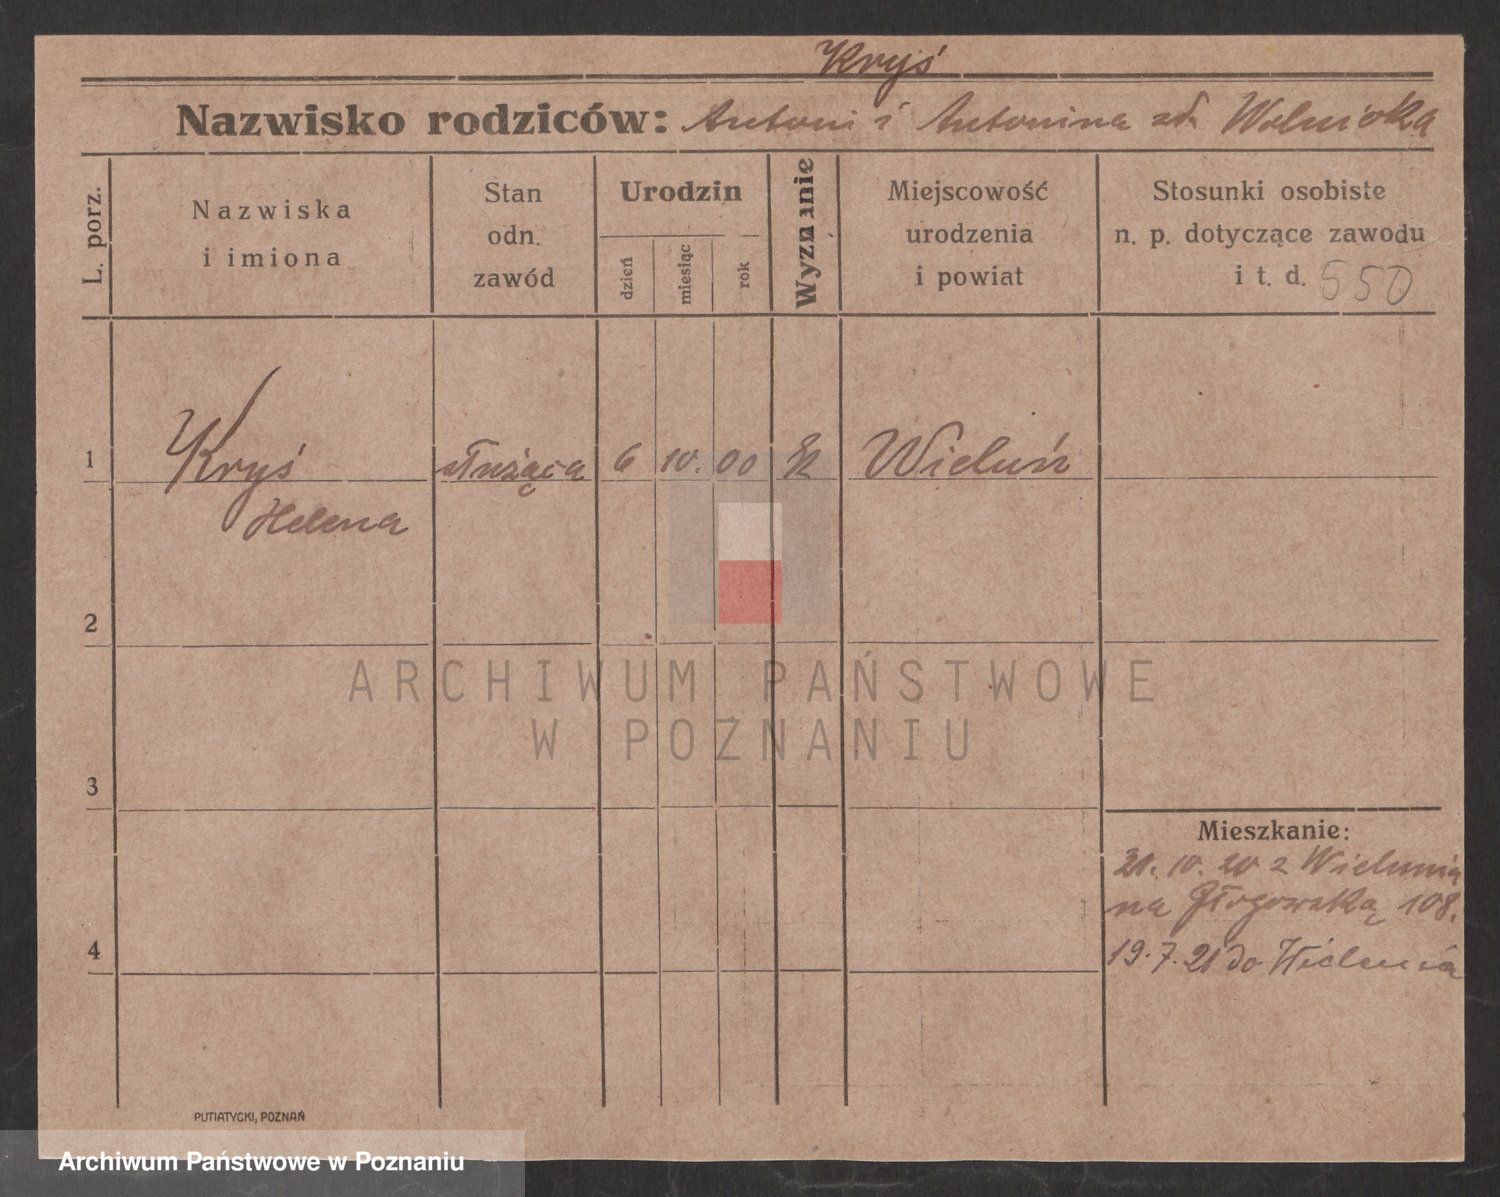 Kryś
Nazwisko rodziców: Antoni i Antonina zd. Wolnicka
L. porz.
Nazwiska
i imiona
Stan
odn.
zawód
Urodzin
dzień
miesiąc
rok
Wyznanie
Miejscowość
urodzenia
i powiat
Stosunki osobiste
n. p. dotyczące zawodu
i t. d. 550
1 Kryś służąca 6 10. 00 Wieluń
Helena
2
ARCHIWUM PAŃSTWOWE
W POZNANIU
3
Mieszkanie:
21. 10. 20 z Wielunia
na Głogowską 108.
4
19. 7. 21 do Wielunia
PUTIATYCKI, POZNAŃ
Archiwum Państwowe w Poznaniu